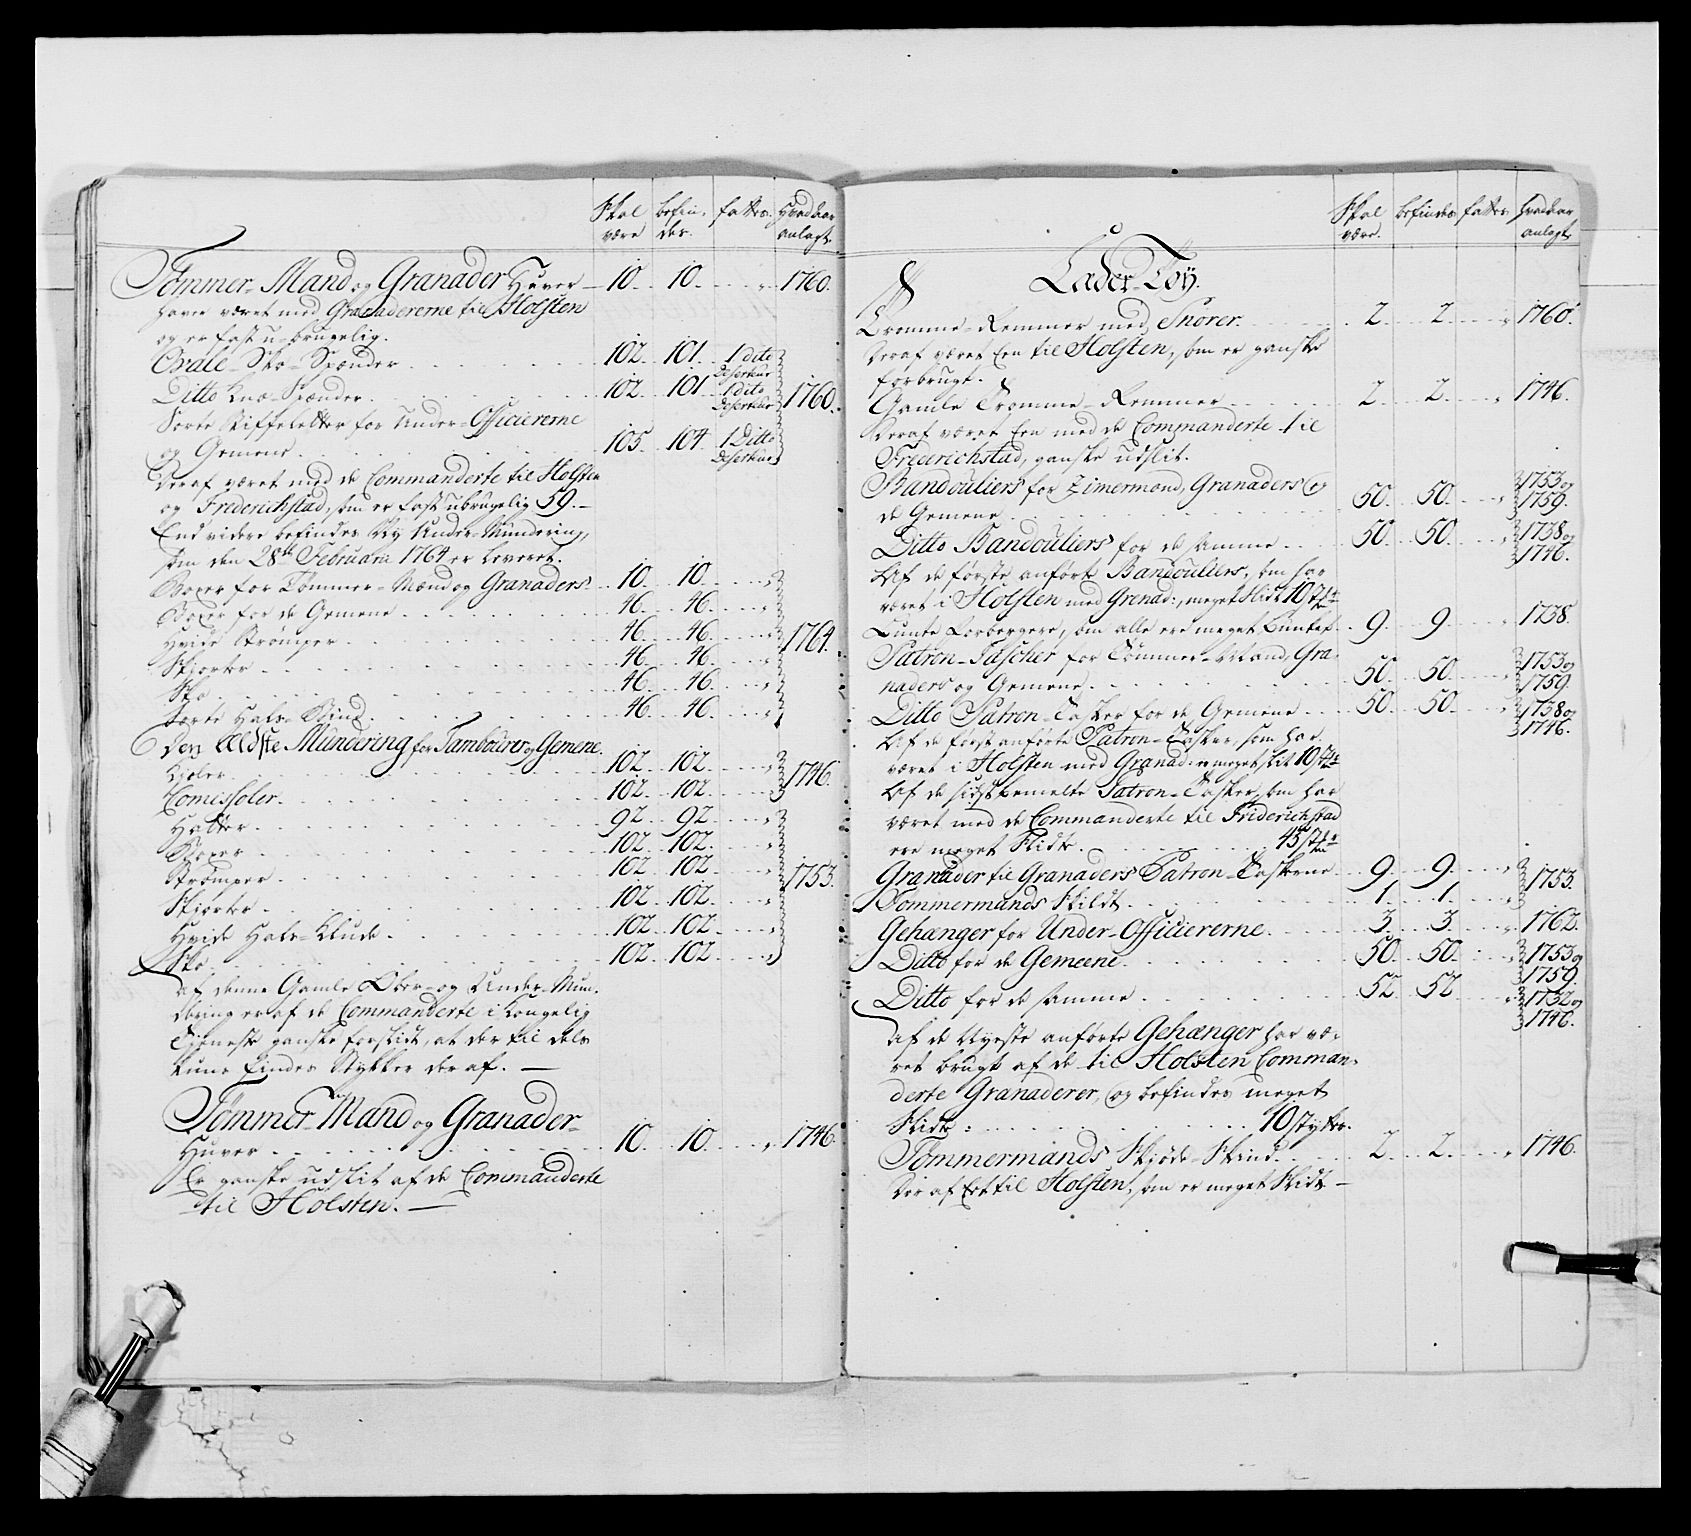 Skal være befindes fattes Hvad Aar anlagt
Tømmer-Mand og Granader Huver 10. 10. 1760.
haver været med Granadererne til Holsten
og er fast u-brugelig.
Ovale Sko-Spænder 102. 101. 1 dito Deserteur
Ditto Knæ-Spænder 102. 101. 1 dito Deserteur 1760.
Sorte Stiffeletter for Under-Officiererne
og Gemene 105. 104. 1 Ditto Deserteur
Deraf været med de Commanderte til Holsten
og Frederichstad, som er fast ubrugelig 59.
End videre befindes Ny Under-Mundering,
som den 28de Februarii 1764 er leveret.
Boxer for Tømmer-Mænd og Granaders 10. 10.
Boxer for de Gemene 46. 46.
Hvide Strømper 46. 46. 1764.
Skjorter 46. 46.
Sko 46. 46.
Sorte Hals-Bind 46. 46.
Den Ældste Mundering for Tambourer og Gemene.
Kjoler 102. 102. 1746.
Comissoler 102. 102.
Hatter 92. 92.
Boxer 102. 102.
Strømper 102. 102. 1753.
Skjorter 102. 102.
Hvide Hals-Klude 102. 102.
Sko 102. 102.
af denne Gamle Ober- og Under-Mun-
dering er af de Commanderte i Kongelig
Tieneste ganske forslidt, at der til dels
kuns findes Stykker der af.
Tømmer-Mand og Granader-
Huver 10. 10. 1746.
Er ganske udslit af de Commanderte
til Holsten.
Skal være. befindes fattes Hvad Aar anlagt
Læder-Tøy.
Tromme-Remmer med Snorer 2. 2. 1760.
Deraf været Een til Holsten, som er ganske
forbrugt.
Gamle Tromme-Remmer 2. 2. 1746.
Deraf været Een med de Commanderte til
Frederichstad, ganske udslit.
Bandouliers for Zimermand, Granaders og
de Gemene 50. 50. 1753 og 1759.
Ditto Bandouliers for de samme 50. 50. 1738 og 1746.
Af de første anførte Bandouliers, som har
været i Holsten med Grenad:, meget slidt 10 st
Lunte Forbergere, som alle ere meget 9. 9. 1738.
Patron-Tascher for Tømmer-Mand, Gra-
naders og Gemene 50. 50. 1753 og 1759.
Ditto Patron-Tasker for de Gemene 50. 50. 1738 og 1746.
Af de først anførte Patron-Tasker, som har
været i Holsten med Granad: er meget slit 10 st
Af de sidstbemelte Patron-Tasker, som har
været med de Commanderte til Friderichstad
ere meget Slidte 45 st
Granader til Granaders Patron-Taskerne 9. 9. 1753.
Tømmermands Skildt 1. 1.
Gehænger for Under-Officiererne 3. 3. 1762.
Ditto for de Gemeene 50. 50. 1753 og 1759
Ditto for de samme 52. 52. 1732 og 1746.
Af de Nyeste anførte Gehænger har væ-
ret brugt af de til Holsten Comman-
derte Granaderer, og befindes meget
Slidte: 10 stykker.
Tømmermands Skjøde-Skind 2. 2. 1746.
Der af Eet til Holsten, som er meget Slidt